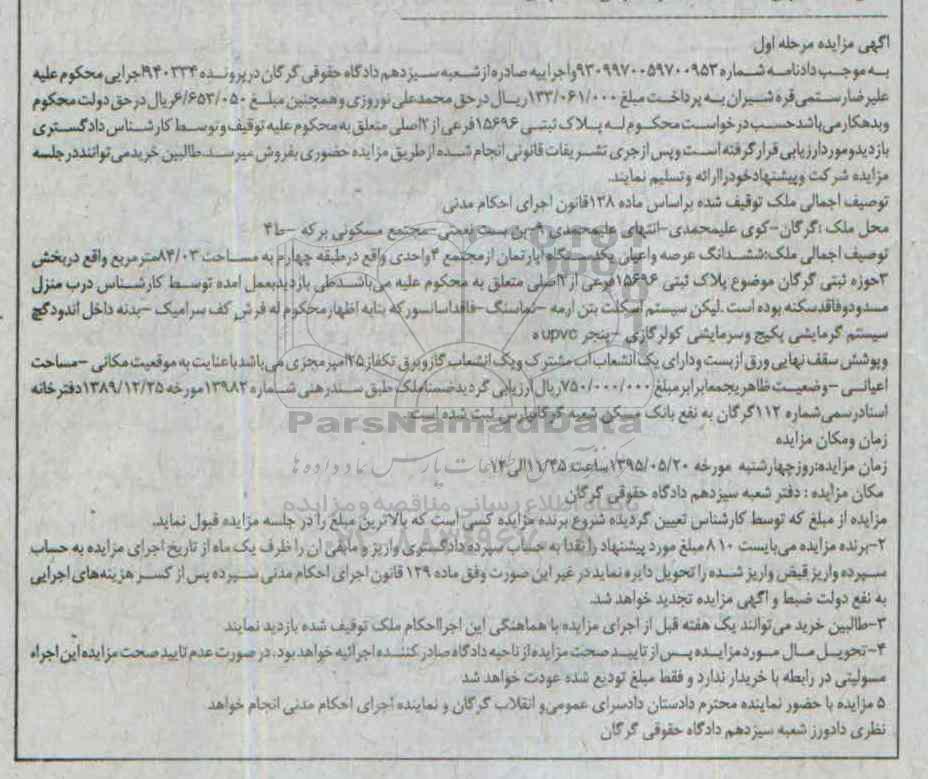 آگهی مزایده مرحله اول
به موجب دادنامه شماره ۹۳۰۹۹۷۰۰۵۹۷۰۰۹۵۳واجراییه صادره از شعبه سیزدهم دادگاه حقوقی گرگان در پرونده ۹۴۰۳۳۴اجرایی محکوم علیه
علیرضا رستمی قره شیران به پرداخت مبلغ ۱۳۳/۰۶۱/۰۰۰ریال در حق محمدعلی نوروزی و همچنین مبلغ ۶/۶۵۳/۰۵۰ریال در حق دولت محکوم
وبدهکار می باشد حسب درخواست محکوم له پلاک ثبتی ۱۵۶۹۶فرعی از ۲اصلی متعلق به محکوم علیه توقیف و توسط کارشناس دادگستری
بازدیدومورد ارزیابی قرار گرفته است وپس از جری تشریفات قانونی انجام شده از طریق مزایده حضوری بفروش میرسد.طالبین خرید می تواننددر جلسه
مزایده شرکت وپیشنهادخودراارائه وتسلیم نمایند.
توصیف اجمالی ملک توقیف شده براساس ماده ۱۳۸قانون اجرای احکام مدنی
محل ملک :گرگان-کوی علیمحمدی-انتهای علیمحمدی ۹-بن بست نعمتی-مجتمع مسکونی برکه -ط۴
توصیف اجمالی ملک:ششدانگ عرصه واعیان یکدستگاه آپارتمان از مجتمع ۴واحدی واقع درطبقه چهارم به مساحت ۸۴/۰۳مترمربع واقع دربخش
۳حوزه ثبتی گرگان موضوع پلاک ثبتی ۱۵۶۹۶فرعی از ۲اصلی متعلق به محکوم علیه می باشدطی بازدیدبعمل امده توسط کارشناس درب منزل
مسدودوفاقدسکنه بوده است .لیکن سیستم اسکلت بتن ارمه -نماسنگ-فاقداسانسورکه بنابه اظهار محکوم له فرش کف سرامیک -بدنه داخل اندودگچ
سیستم گرمایشی پکیج وسرمایشی کولرگازی -پنجر upvc ه
وپوشش سقف نهایی ورق ازبست ودارای یک انشعاب اب مشترک ویک انشعاب گازوبرق تکفاز۲۵امپر مجزی می باشدباعنایت به موقعیت مکانی -مساحت
اعیانی -وضعیت ظاهریجمعابرابر مبلغ ۷۵۰/۰۰۰/۰۰۰ریال ارزیابی گردیدضمناملک طبق سندرهنی شماره ۱۳۹۸۲مورخه ۱۳۸۹/۱۲/۲۵دفترخانه
اسنادرسمی شماره ۱۱۲گرگان به نفع بانک مسکن شعبه گرگانپارس ثبت شده است
زمان ومکان مزایده
زمان مزایده:روزچهارشنبه مورخه ۱۳۹۵/۰۵/۲۰ساعت ۱۱/۴۵الی۱۲
مکان مزایده : دفتر شعبه سیزدهم دادگاه حقوقی گرگان
مزایده از مبلغ که توسط کارشناس تعیین گردیده شروع برنده مزایده کسی است که بالاترین مبلغ را در جلسه مزایده قبول نماید.
۲-برنده مزایده می بایست ۱۰٪ مبلغ مورد پیشنهاد را نقدا به حساب سپرده دادگستری واریز و مابقی ان را ظرف یک ماه از تاریخ اجرای مزایده به حساب
سپرده واریز قبض واریز شده را تحویل دایره نماید در غیر این صورت وفق ماده ۱۲۹ قانون اجرای احکام مدنی سپرده پس از کسر هزینه های اجرایی
به نفع دولت ضبط و اگهی مزایده تجدید خواهد شد.
۳-طالبین خرید می توانند یک هفته قبل از اجرای مزایده با هماهنگی این اجرااحکام ملک توقیف شده بازدید نمایند.
۴-تحویل مال مورد مزایده پس از تایید صحت مزایده از ناحیه دادگاه صادر کننده اجرائیه خواهد بود. در صورت عدم تایید صحت مزایده این اجراء
مسولیتی در رابطه با خریدار ندارد و فقط مبلغ تودیع شده عودت خواهد شد
۵ مزایده با حضور نماینده محترم دادستان دادسرای عمومی و انقلاب گرگان و نماینده اجرای احکام مدنی انجام خواهد
نظری دادورز شعبه سیزدهم دادگاه حقوقی گرگان
ParsNamadData
پایگاه اطلاع رسانی مناقصه و مزایده